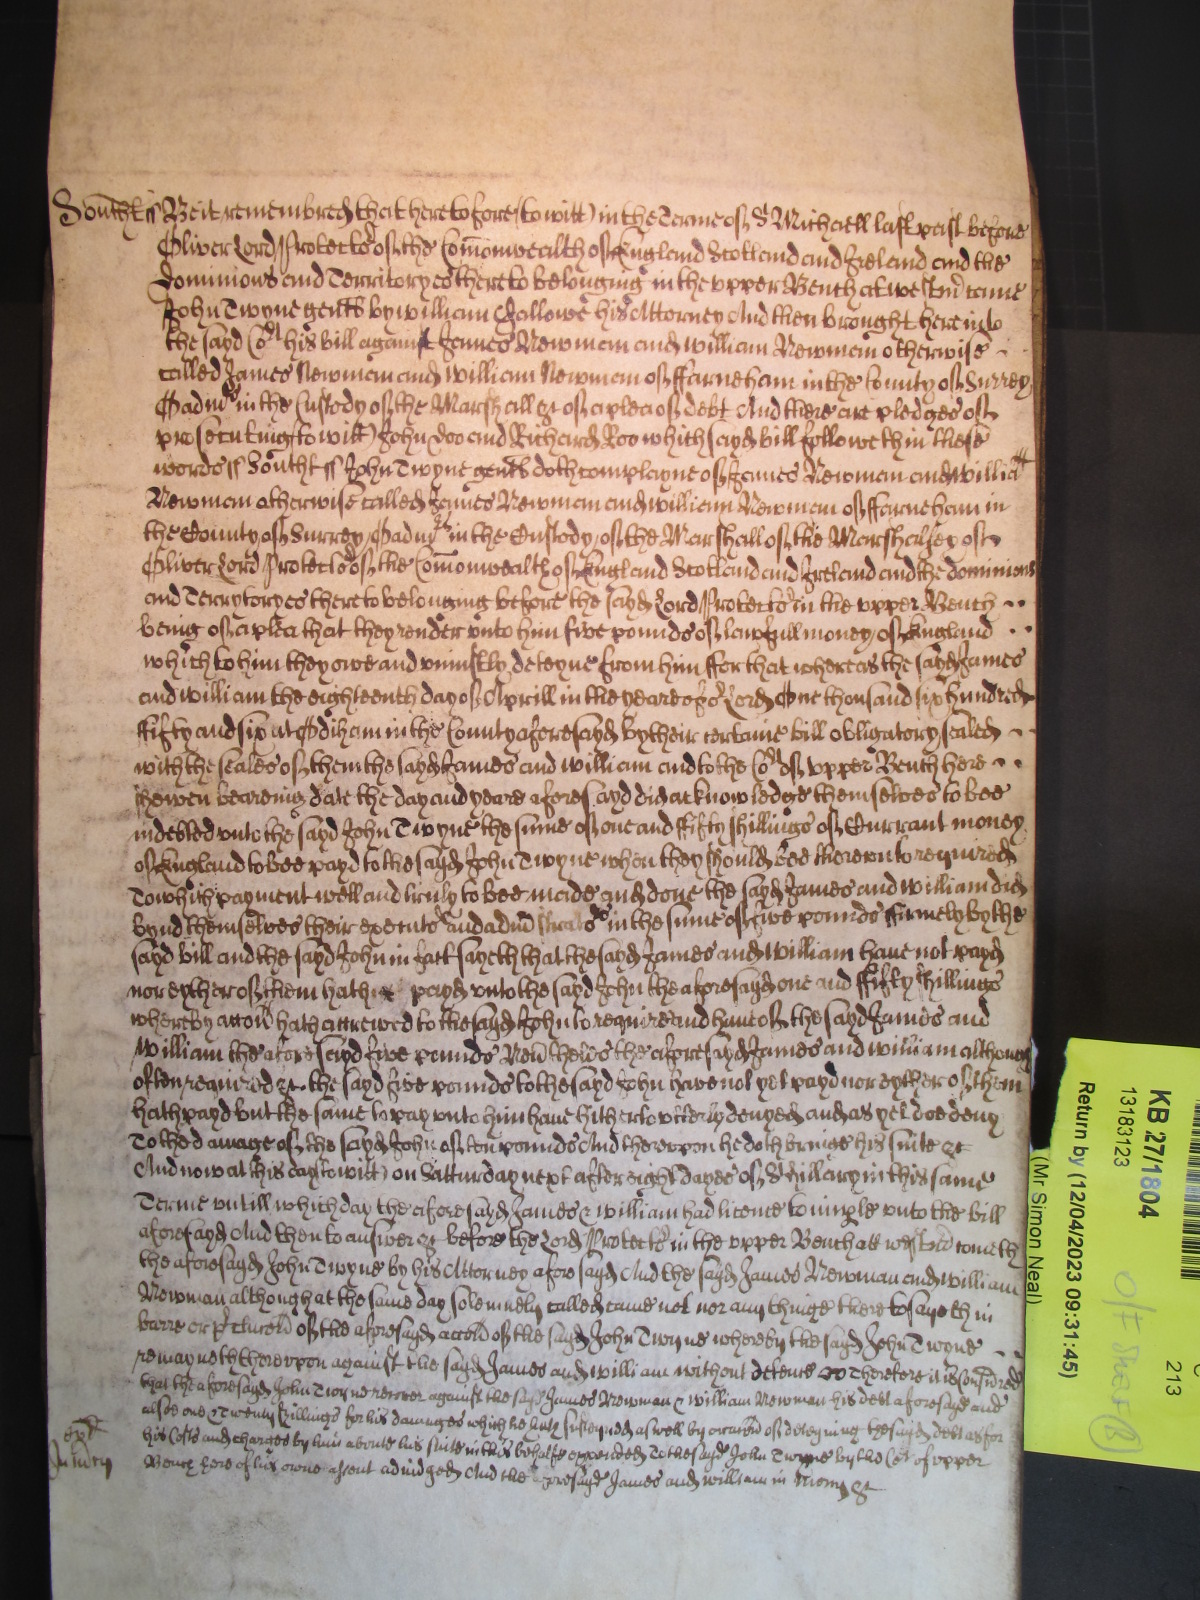 Southt ss Be it remembred that heretofore (to witt) in the Terme of St Michaell last past before
Oliver Lord Protector of the Comonwealth of England Scotland and Ireland and the
dominions and Territoryes thereto belonging in the upper Bench at westmr came
John Twyne gent by william his Attorney And then brought here into
the sayd Cort his bill against James Newman and William Newman otherwise
called James Newman and William Newman of ffarneham in the County of Surrey
in the Custody of the Marshall &c of a plea of debt And there are pledges of
prosecuting (to witt) John Doo and Richard Roo which sayd bill followeth in these
words ss Southt ss John Twyne gent doth complayne of James Newman and Willia
Newman otherwise called James Newman and william Newman of ffarneham in
the County of Surrey in the Custody of the Marshall of the Marshalsey of
Oliver Lord Protector of the Comonwealth of England Scotland and Ireland and the dominions
and Terrytoryes thereto belonging before the sayd Lord Protector in the upper Bench
being of a plea that they render unto him five pounds of lawfull money of England
which to him they owe and uniustly deteyne from him ffor that whereas the sayd James
and william the eighteenth day of Aprill in the yeare of or Lord One thousand six hundred
ffifty and six at Odiham in the County aforesayd by their certaine bill obligatory sealed
with the seales of them the sayd James and william and to the Cort of upper Bench here
shewen beareing date the day and yeare aforesayd did acknowledge themselves to bee
indebted unto the sayd John Twyne the sume of one and ffifty shillings of Currant money
of England to bee payd to the sayd John Twyne when they should bee thereunto required
To which payment well and truly to bee made and done the sayd James and william did
bynd themselves their executors and in the sume of five pounds ffirmely by the
sayd bill and the sayd John in fact sayeth that the sayd James and William have not payd
nor eyther of them hath payd unto the sayd John the aforesayd one and ffifty shillings
whereby accon hath accrewed to the sayd John to require and have of the sayd James and
William the aforesayd five pounds Nevertheles the aforesayd James and william although
often required &c the sayd five pounds to the sayd John have not yet payd nor eyther of them
hath payd but the same to pay unto him have hitherto utterly denyed and as yet doe deny
To the damage of the sayd John of ten pounds And thereupon he doth bringe his suite &c
And now at this day (to witt) on Satturday next after eight dayes of St hillary in this same
Terme untill which day the aforesayd James & william had licence to imple unto the bill
aforesayd And then to answer &c before the Lord Protector in the upper Bench att westmr cometh
the aforesayd John Twyne by his Attorney aforesayd And the sayd James Newman and William
Newman although at the same day solemnely called came not nor any thinge there to sayeth in
barre or of the aforesayd accon of the sayd John Twyne whereby the sayd John Twyne
remayneth thereupon against the sayd James and william without defence &c Therefore it is considered
that the aforesayd John Twyne recover against the sayd James Newman & William Newman his debt aforesayd and
alsoe one & Twenty shillings for his damages which he hath susteyned aswell by occasion of deteyning the sayd debt as for
his Costs and charges by him about his suite in this behalfe expended To the sayd John Twyne by the Cort of upper
Bench here of his owne assent adiudged And the aforesayd James and william in mercy &c
KB 27/1804
13183123
Return by (12/04/2023 09:31:45)
(Mr Simon Neal)
213